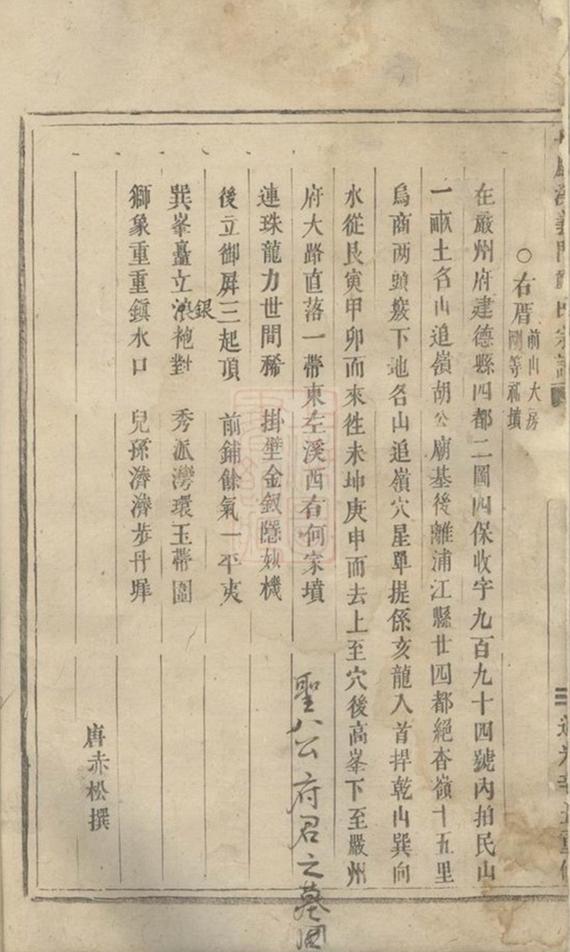 ○右厝前山大房剛等福墳
在嚴州府建德縣四都二圖四保收字九百九十四號內拍民山
一畝土名山追嶺胡公廟基後離浦江縣廿四都絕杳嶺十五里
烏商两頭發下地名山追嶺穴星單提係亥龍入首捍乾山巽向
水從艮寅甲卯而來徃未坤庚申而去上至穴後高峯下至嚴州
府大路直落一帶東左溪西右何家墳
連珠龍力世間稀 掛壁金釵隱妖機
後立御屏三起頂 前鋪餘氣一平夷
巽峯矗立浪銀袍對 秀派灣環玉帶圍
獅象重重鎮水口 兒孫濟濟步丹墀
唐赤松撰
聖八公府君之墓圖